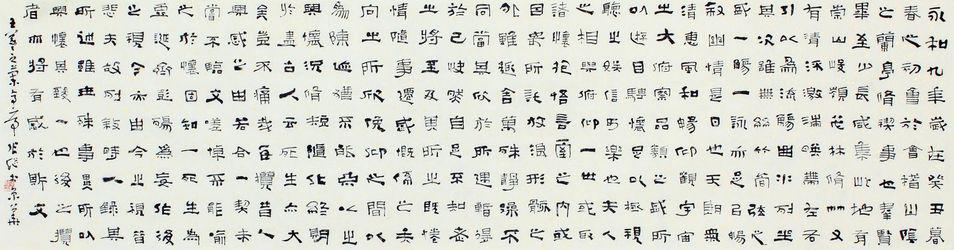 永和九年歲在癸丑暮
春之初會於會稽山陰
之蘭亭脩禊事也羣賢
畢至少長咸集此地有
崇山峻領茂林脩竹又
有清流激湍映帶左右
引以為流觴曲水列坐
其次雖無絲竹管弦之
盛一觴一詠亦足以暢
敘幽情是日也天朗氣
清惠風和暢仰觀宇宙
之大俯察品類之盛所
以遊目騁懷足以極視
聽之娛信可樂也夫人
之相與俯仰一世或取
諸懷抱悟言一室之內或
因寄所託放浪形骸之
外雖趣舍萬殊靜躁不
同當其欣於所遇暫得
於己快然自足不知老
之將至及其所之既惓
情隨事遷感慨係之矣
向之所欣俛仰之間以
為陳跡猶不能不以之
興懷況脩短隨化終期
於盡古人云死生亦大
矣豈不痛哉每攬昔人
興感之由若合一契未
嘗不臨文嗟悼不能喻
之於懷固知一死生為
虛誕齊彭殤為妄作後
之視今亦由今之視昔
悲夫故列敘時人錄其
所述雖世殊事異所以
興懷其致一也後之攬
者亦將有感於斯文
王羲之蘭亭序 張繼書